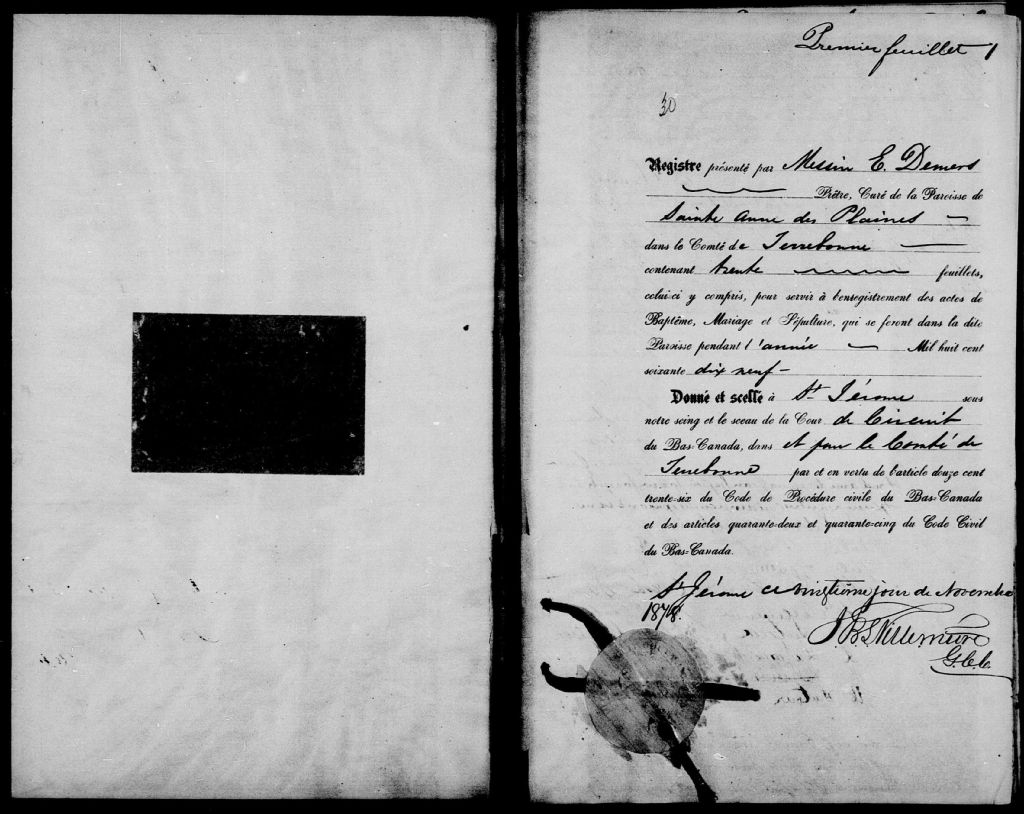 Premier feuillet 1
30
Registre présenté par Messire E. Demers
Prêtre, Curé de la Paroisse de
Sainte Anne des Plaines —
dans le Comté de Terrebonne —
contenant trente feuillets,
celui-ci y compris, pour servir à l'enregistrement des actes de
Baptême, Mariage et Sépulture, qui se feront dans la dite
Paroisse pendant l'année — Mil huit cent
soixante dix neuf —
Donné et scellé à St Jérome sous
notre seing et le sceau de la Cour de Circuit
du Bas-Canada, dans et pour le Comté de
Terrebonne par et en vertu de l'article douze cent
trente-six du Code de Procédure civile du Bas-Canada
et des articles quarante-deux et quarante-cinq du Code Civil
du Bas-Canada.
St Jérome ce vingtième jour de Novembre
1878.
G.C.C.